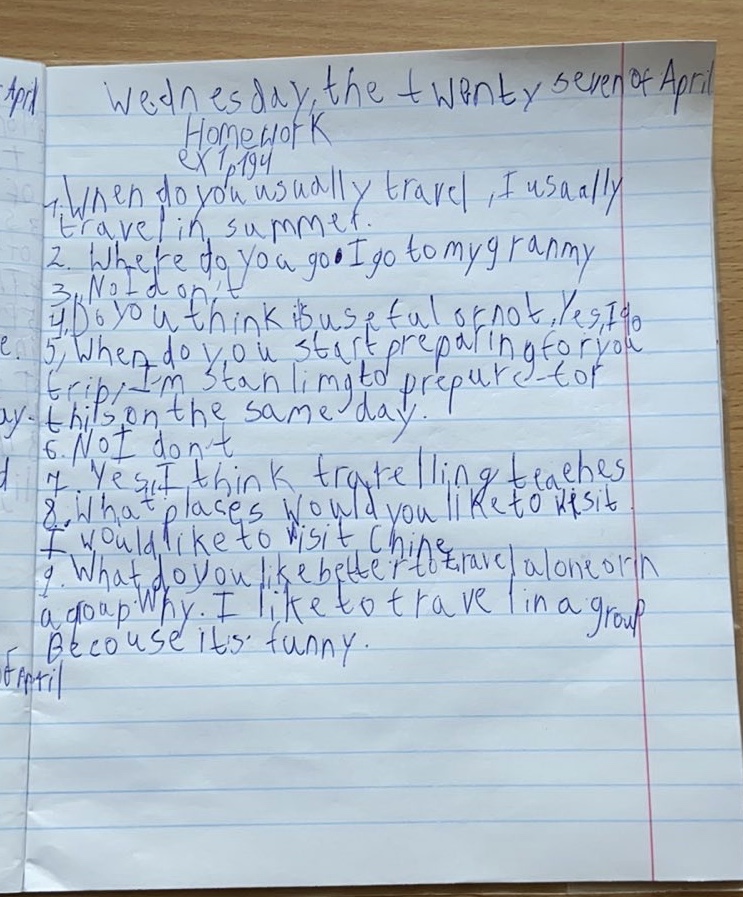 April
Wednesday, the twenty seven of April
Homework
ex 1 p194
1. When do you usually travel, I usaally
travel in summer.
2. Where do you go. I go to my granmy
3. No I don't
4. Do you think is useful or not, Yes, I do
e.
5, When do you start preparing for you
trip, I'm stanlimg to prepure for
ay-
this on the same day.
6. No I don't
d
7. Yes, I think travelling teaches
8. What places would you like to visit
I would like to visit Chine
9. What do you like better to travel alone or in
a group. Why. I like to travel in a group
Becouse it's funny.
of April